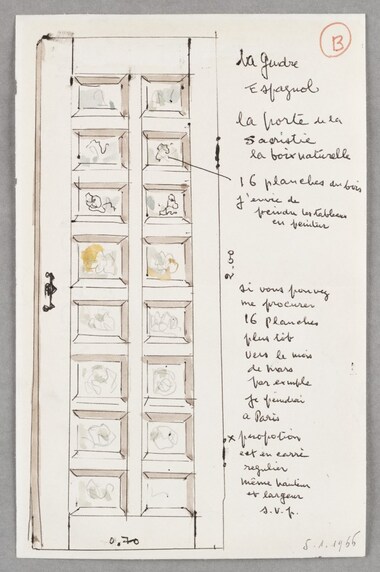 B
Espagnol
la porte de la
Sacristie
la bois naturelle
16 planches du bois
j'envie de
peindre les tableaux
si vous pouvez
me procurer
16 planches
plus tôt
vers le mois
de Mars
par exemple
je peindrai
a Paris
x
est en carré
regulier
même hauteur
et largeur
s.v.p.
0.70
5.1.1966